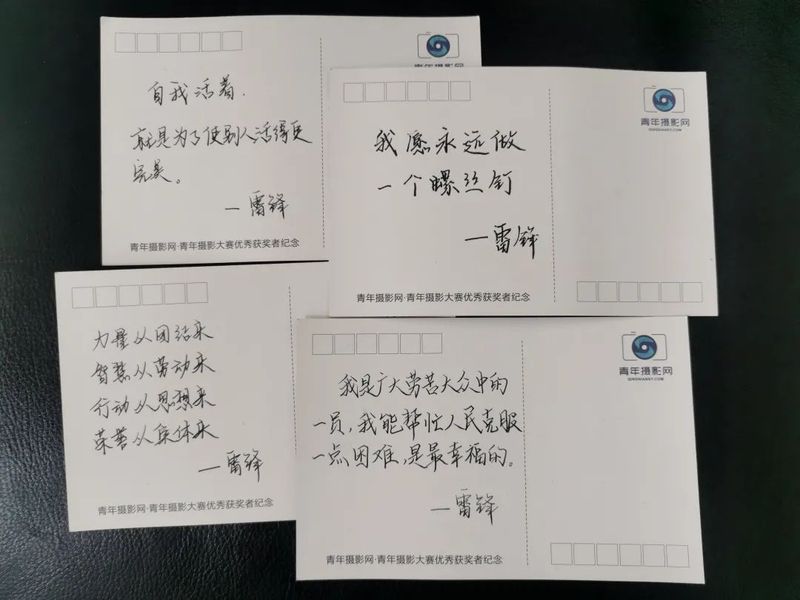 自我活着.
就是为了使别人活得更
完美。
—雷锋
青年摄影网·青年摄影大赛优秀获奖者纪念
青年摄影网
我愿永远做
一个螺丝钉
—雷锋
青年摄影网·青年摄影大赛优秀获奖者纪念
青年摄影网
力量从团结来
智慧从劳动来
行动从思想来
荣誉从集体来
—雷锋
青年摄影网·青年摄影大赛优秀获奖者纪念
我是广大劳苦大众中的
一员,我能帮忙人民克服
一点困难,是最幸福的。
—雷锋
青年摄影网·青年摄影大赛优秀获奖者纪念
青年摄影网